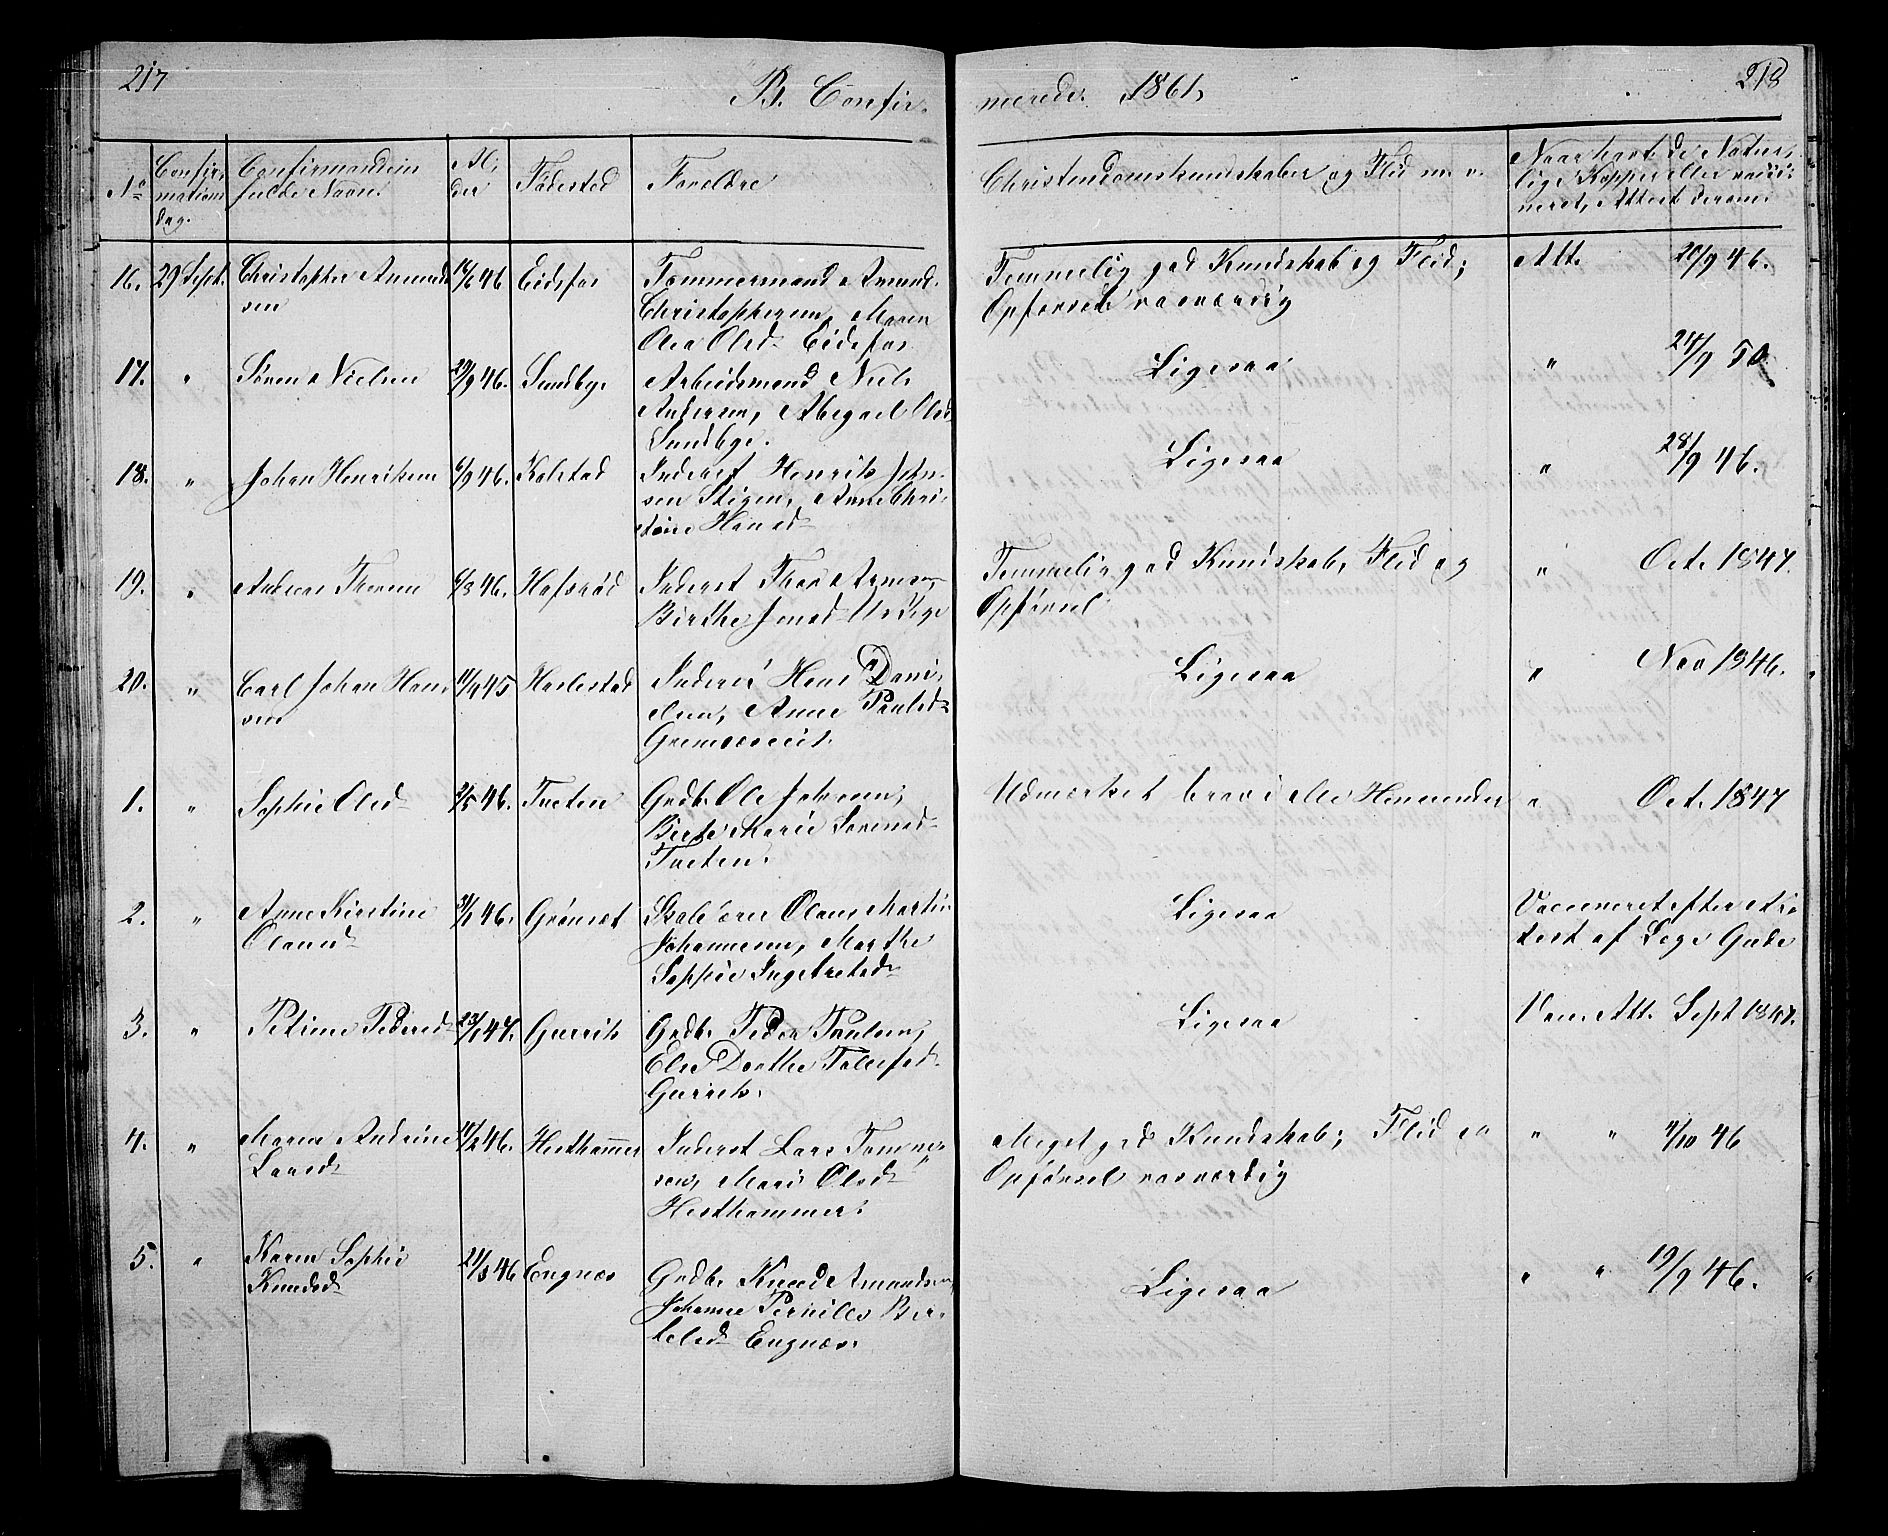 217
B. Confir-
merede. 1861,
218
No
Confir-
mations
dag.
Confirmandens
fulde Navn.
Al-
der
Fødested
Forældre
Christendomskundskaber og Flid m. v.
Naar havt de Natur-
lige Kopper eller vacci-
neret, Attest derom.
16. 29 Sept. Christopher Amund-
sen
46 Eidsfos
Tømmermand Amund
Christophersen, Maren
Olea Olsd. Eidsfos
Temmelig god Kundskab og Flid;
Opførsel rosværdig
Att. 20/9 46.
17. " Søren Nielsen 29/9 46. Sundbye
Arbeidsmand Niels
Andersen, Abegael Olsd.
Sundbye.
Ligesaa
" 24/9 50
18. " Johan Henriksen 6/9 46. Kolstad
Inderst Henrik John-
sen Stigen, Anne Chri-
stine Hansd.
Ligesaa
" 28/9 46.
19. " Andreas Thoresen 6/3 46. Hafsrød
Inderst Thor
Birthe
Temmelig god Kundskab, Flid og
Opførsel
" Oct. 1847.
20. " Carl Johan Han-
sen
45 Haslestad
Inderst Hans Dani-
elsen, Anne Paulsd.
Ligesaa
" Nov 1846.
1. " Sophie Olsd. 2/5 46. Tveten
Grdbr. Ole Johnsen,
Birte Marie Sørensd.
Tveten.
Udmærket brav i alle Henseender
" Oct. 1847
2. " Anne Kirstine
Olausd.
3/1 46. Grønset
Skolelærer Olaus Martin
Johannesen, Marthe
Sophie Ingebretsd.
Ligesaa
Vaccineret efter At-
test af Læge Gude
3. " Petrine Pedersd. 23/1 47. Gurrik
Grdbr. Peder Paulsen,
Else Dorthe Tollefsd.
Gurrik.
Ligesaa
Vac. Att. Sept 1847.
4. " Maren Andrine
Larsd.
46. Hesthammer
Inderst Lars Tømmer-
sen, Mari Olsd.
Hesthammer.
Meget god Kundskab; Flid og
Opførsel rosværdig
" " 4/10 46
5. " Karen Sophie
Knudsd.
21/3 46 Engnæs
Grdbr. Knud Amundsen,
Johanne Pernille Ber-
telsd. Engnæs.
Ligesaa
" " 19/9 46.